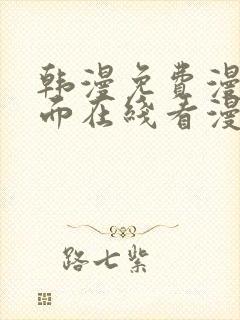 韩漫免费漫
而在线看漫
路七紫